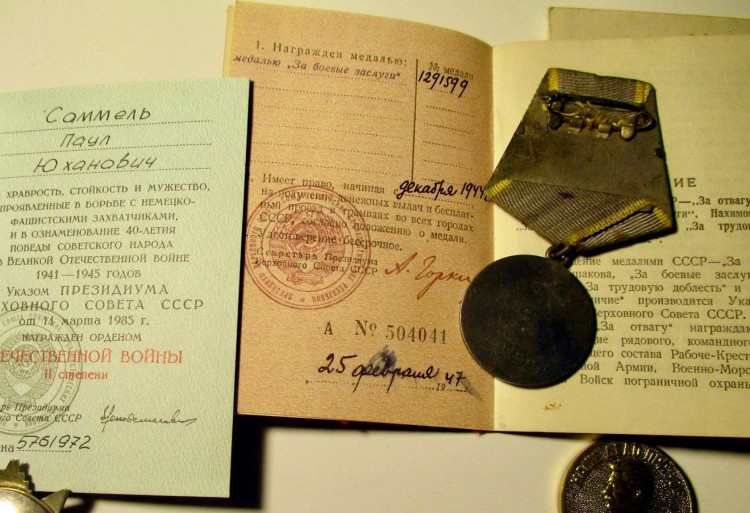 Саммель
Паул
Юханович
ХРАБРОСТЬ, СТОЙКОСТЬ И МУЖЕСТВО,
ПРОЯВЛЕННЫЕ В БОРЬБЕ С НЕМЕЦКО-
ФАШИСТСКИМИ ЗАХВАТЧИКАМИ,
И В ОЗНАМЕНОВАНИЕ 40-ЛЕТИЯ
ПОБЕДЫ СОВЕТСКОГО НАРОДА
В ВЕЛИКОЙ ОТЕЧЕСТВЕННОЙ ВОЙНЕ
1941—1945 ГОДОВ
УКАЗОМ ПРЕЗИДИУМА
РХОВНОГО СОВЕТА СССР
от 11 марта 1985 г.
НАГРАЖДЕН ОРДЕНОМ
ТЕЧЕСТВЕННОЙ ВОЙНЫ
II степени
арь Президиума
ного Совета СССР
на 5761972
1. Награжден медалью:
медалью „За боевые заслуги"
№ медали
1291599
Имеет право, начиная с декабря 1944
на получение денежных выдач и бесплат-
ный проезд в трамваях во всех городах
СССР, согласно положению о медали.
Удостоверение бессрочное.
Секретарь Президиума
Верховного Совета СССР
А. Горкин
А № 504041
25 февраля 1947
НИЕ
—„За отвагу
ти", Нахимо
„За трудо
дение медалями СССР—„За
шакова, „За боевые заслуги
„За трудовую доблесть" и
ичие" производится Указа
ерховного Совета СССР.
„За отвагу" награждаю
ие рядового, командного
щего состава Рабоче-Крест
ной Армии, Военно-Морс
Войск пограничной охраны